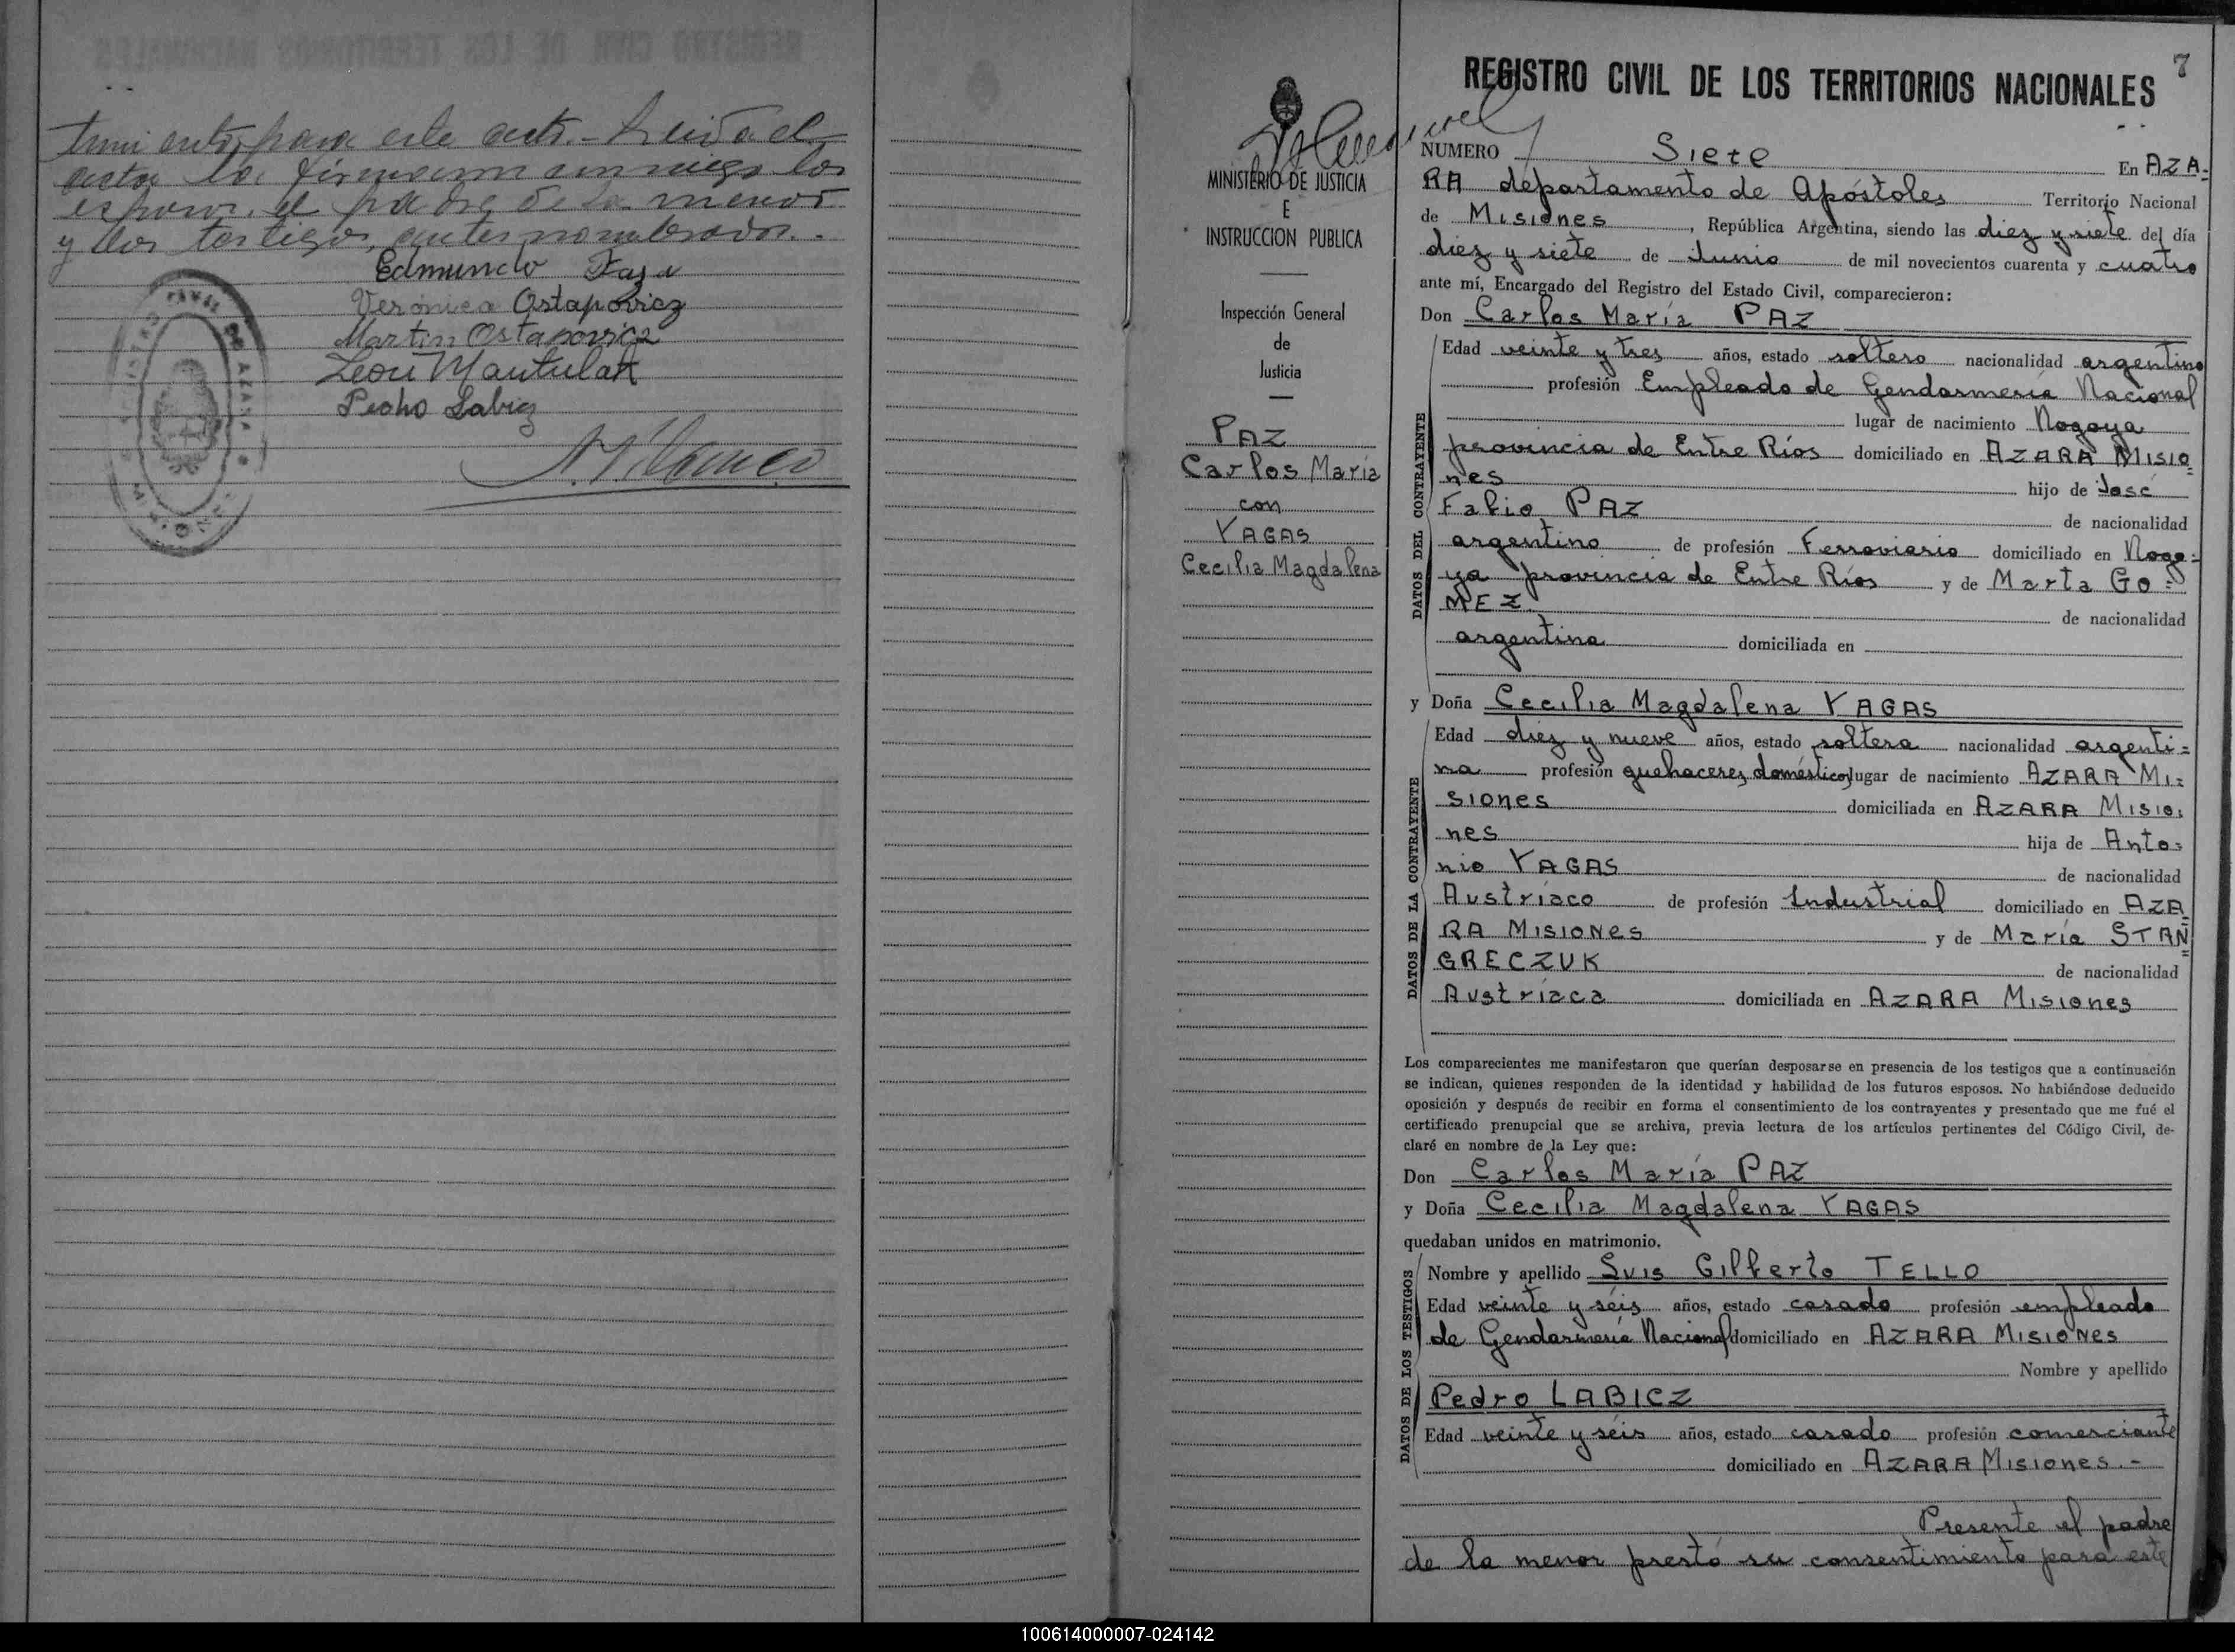 timiento para este acto.- Leida el
acta la firmaron conmigo los
esposos, el padre de la menor
y los testigos, antes nombrados.-
Edmundo
Verónica Ostapovicz
Martin Ostapovicz
León Mantulak
Pedro Labicz
7
REGISTRO CIVIL DE LOS TERRITORIOS NACIONALES
MINISTERIO DE JUSTICIA
E
INSTRUCCION PUBLICA
Inspección General
de
Justicia
PAZ
Carlos María
con
YAGAS
Cecilia Magdalena
NUMERO Siete En AZA-
RA departamento de Apóstoles Territorio Nacional
de Misiones, República Argentina, siendo las diez y siete del día
diez y siete de Junio de mil novecientos cuarenta y cuatro
ante mí, Encargado del Registro del Estado Civil, comparecieron:
Don Carlos María PAZ
DATOS DEL CONTRAYENTE
Edad veinte y tres años, estado soltero nacionalidad argentino
profesión Empleado de Gendarmería Nacional
lugar de nacimiento Nogoya
provincia de Entre Ríos domiciliado en AZARA MISIO=
nes hijo de José
Fabio PAZ de nacionalidad
argentino de profesión Ferroviario domiciliado en Nogo=
ya provincia de Entre Ríos y de Marta GO=
MEZ de nacionalidad
argentina domiciliada en
y Doña Cecilia Magdalena YAGAS
DATOS DE LA CONTRAYENTE
Edad diez y nueve años, estado soltera nacionalidad argenti=
na profesión quehaceres domésticos lugar de nacimiento AZARA MI=
SIONES domiciliada en AZARA MISIO=
nes hija de Anto=
nio YAGAS de nacionalidad
Austríaco de profesión Industrial domiciliado en AZA=
RA MISIONES y de María STAÑ=
GRECZUK de nacionalidad
Austríaca domiciliada en AZARA MISIONES
Los comparecientes me manifestaron que querían desposarse en presencia de los testigos que a continuación
se indican, quienes responden de la identidad y habilidad de los futuros esposos. No habiéndose deducido
oposición y después de recibir en forma el consentimiento de los contrayentes y presentado que me fué el
certificado prenupcial que se archiva, previa lectura de los artículos pertinentes del Código Civil, de-
claré en nombre de la Ley que:
Don Carlos María PAZ
y Doña Cecilia Magdalena YAGAS
quedaban unidos en matrimonio.
DATOS DE LOS TESTIGOS
Nombre y apellido Luis Gilberto TELLO
Edad veinte y séis años, estado casado profesión empleado
de Gendarmería Nacional domiciliado en AZARA MISIONES
Nombre y apellido
Pedro LABICZ
Edad veinte y séis años, estado casado profesión comerciante
domiciliado en AZARA MISIONES.-
Presente el padre
de la menor prestó su consentimiento para este
100614000007-024142